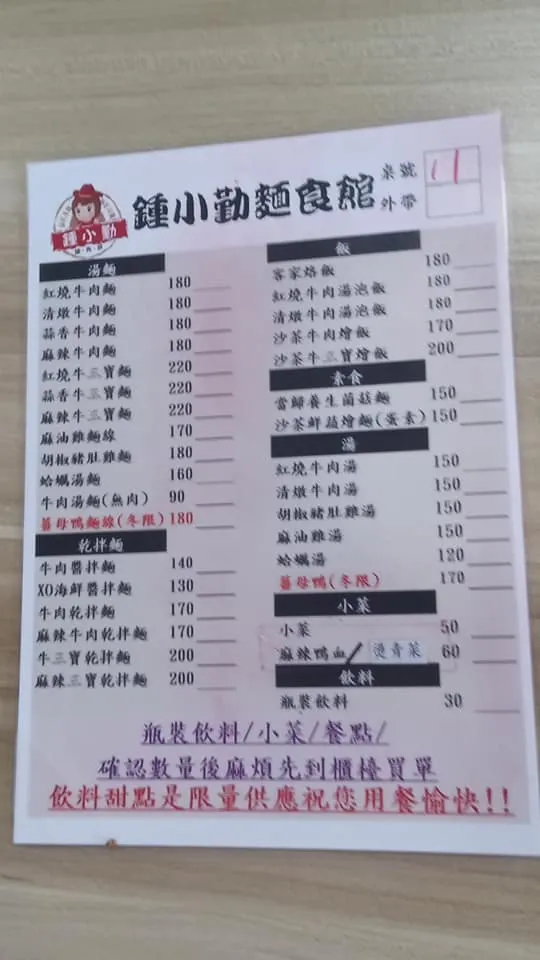 鍾小勤麵食館
桌號 11
外帶
鍾小勤
湯麵
紅燒牛肉麵 180
清燉牛肉麵 180
蒜香牛肉麵 180
麻辣牛肉麵 180
紅燒牛三寶麵 220
蒜香牛三寶麵 220
麻辣牛三寶麵 220
麻油雞麵線 170
胡椒豬肚雞麵 180
蛤蠣湯麵 160
牛肉湯麵(無肉) 90
薑母鴨麵線(冬限) 180
乾拌麵
牛肉醬拌麵 140
XO海鮮醬拌麵 130
牛肉乾拌麵 170
麻辣牛肉乾拌麵 170
牛三寶乾拌麵 200
麻辣三寶乾拌麵 200
飯
客家焢飯 180
紅燒牛肉湯泡飯 180
清燉牛肉湯泡飯 180
沙茶牛肉燴飯 170
沙茶牛三寶燴飯 200
素食
當歸養生菌菇麵 150
沙茶鮮蔬燴麵(蛋素) 150
湯
紅燒牛肉湯 150
清燉牛肉湯 150
胡椒豬肚雞湯 150
麻油雞湯 150
蛤蠣湯 120
薑母鴨(冬限) 170
小菜
小菜 50
麻辣鴨血/燙青菜 60
飲料
瓶裝飲料 30
瓶裝飲料/小菜/餐點/
確認數量後麻煩先到櫃檯買單
飲料甜點是限量供應祝您用餐愉快!!